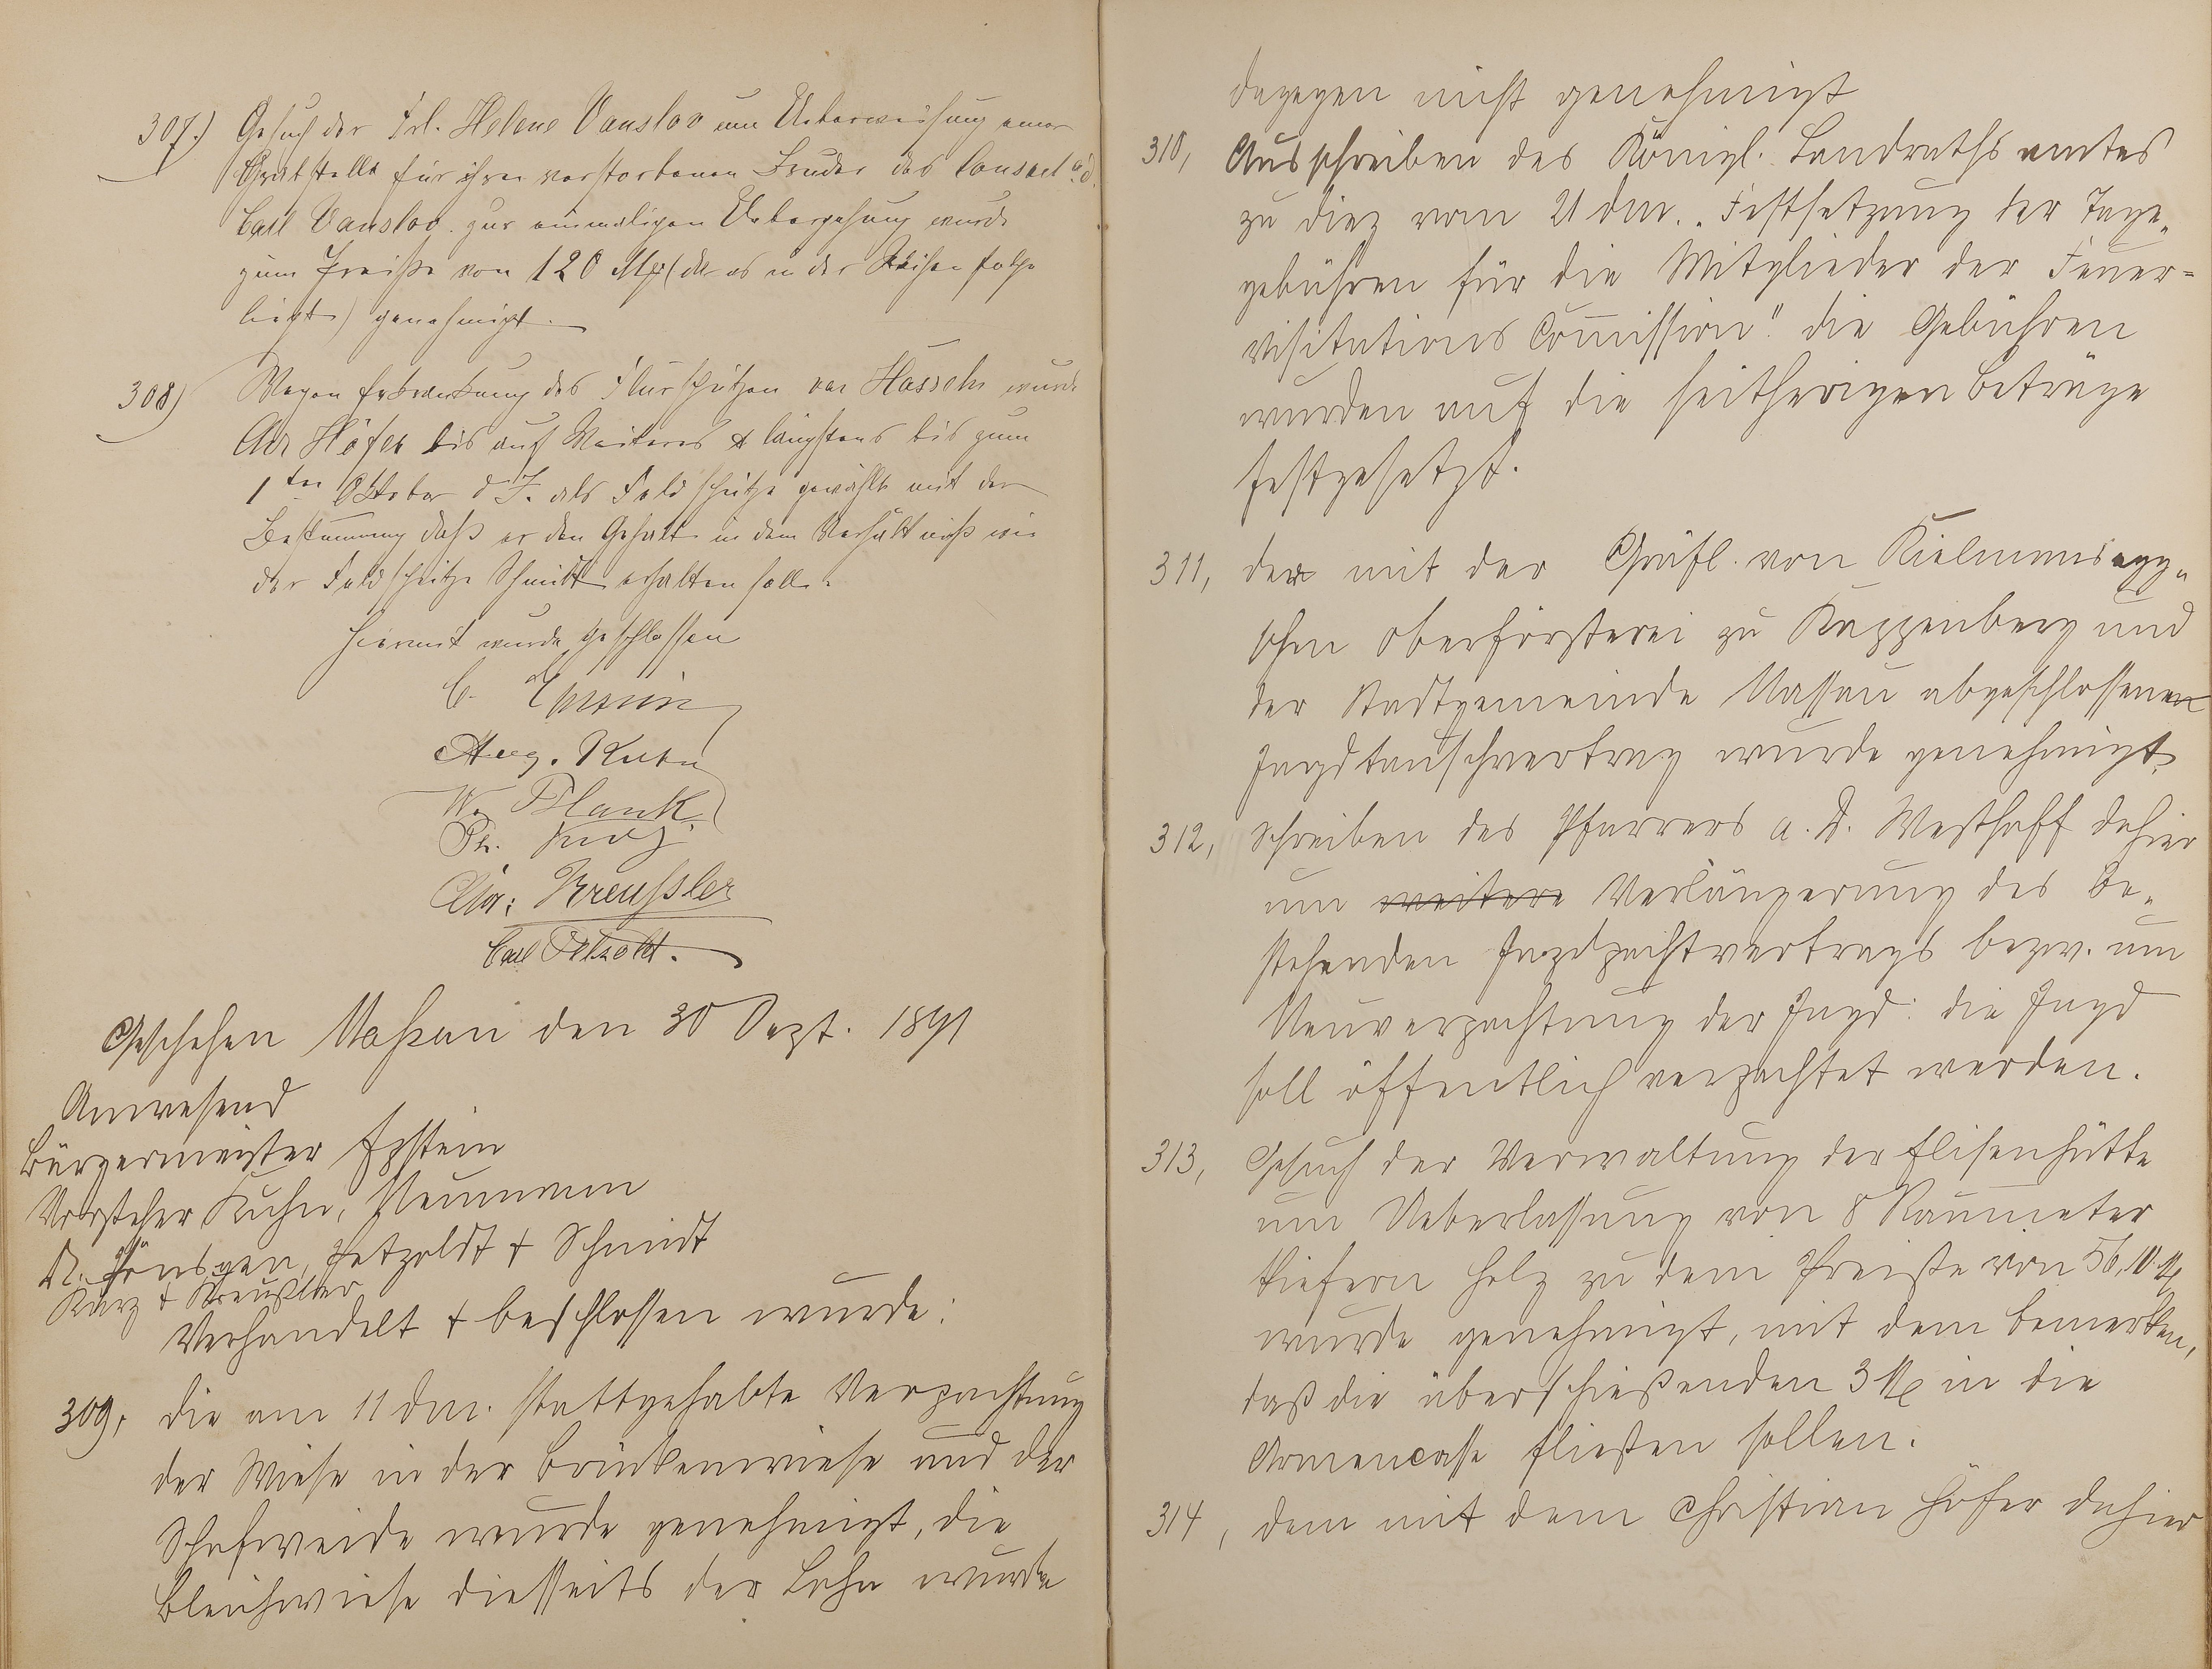 307.) Gesuch der Frl. Helene Vanslov um Ueberweisung einer
Grabstelle für ihren verstorbenen Bruder des Consuel a. d.
Carl Vanslov. zur einmaligen Uebergehung wurde
zum Preiße von 120 Mk (da es in der Reihenfolge
liegt) genehmigt.
308) Wegen Erkrankung des Flurschützen von Hasseln wurde
Adr Höfer bis auf Weiteres & längstens bis zum
1ten Oktober d J. als Feldschütze gewählt mit der
Bestimmung daß er den Gehalt in dem Verhältniß wie
der Feldschütze Schmidt erhalten soll.
Hiermit wurde geschlossen
C. Epstein
Aug. Kuhn
W. Plank
Ph. Kurz
Chr: Kreußler
Carl Petzoldt.
Geschehen Naßau den 30 Sept. 1891
Anwesend
Bürgermeister Epstein
Vorsteher Kuhn, Neumann
Dr. Pönsgen, Petzoldt & Schmidt
Kurz & Kreußler
Verhandelt & beschlossen wurde:
309, die am 11 dm. stattgehabte Verpachtung
der Wiese in der Brückenwiese und der
Schafweide wurde genehmigt, die
Bleichwiese diesseits der Lahn wurde
dagegen nicht genehmigt
310, Ausschreiben des Königl. Landrathsamtes
zu Diez vom 21 dm. „Festsetzung der Tage„
gebühren für die Mitglieder der Feuer-
visitations Commission" die Gebühren
wurden auf die seitherigen Beträge
festgesetzt.
311, der mit der Gräfl. von Kielmansegg„
schen Oberförsterei zu Kappenberg und
der Stadtgemeinde Nassau abgeschlossenen
Jagdtauschvertrag wurde genehmigt.
312, Schreiben des Pfarrers a. D. Westhoff dahier
um weitere Verlängerung des be„
stehenden Jagdpachtvertrags bezw. um
Neuverpachtung der Jagd: die Jagd
soll öffentlich verpachtet werden.
313, Gesuch der Verwaltung der Elisenhütte
um Ueberlassung von 8 Raummeter
Kiefern Holz zu dem Preiße von 56,10 M
wurde genehmigt, mit dem Bemerken,
daß die überschießenden 3 M in die
Armencasse fließen sollen.
314, dem mit dem Christian Höfer dahier